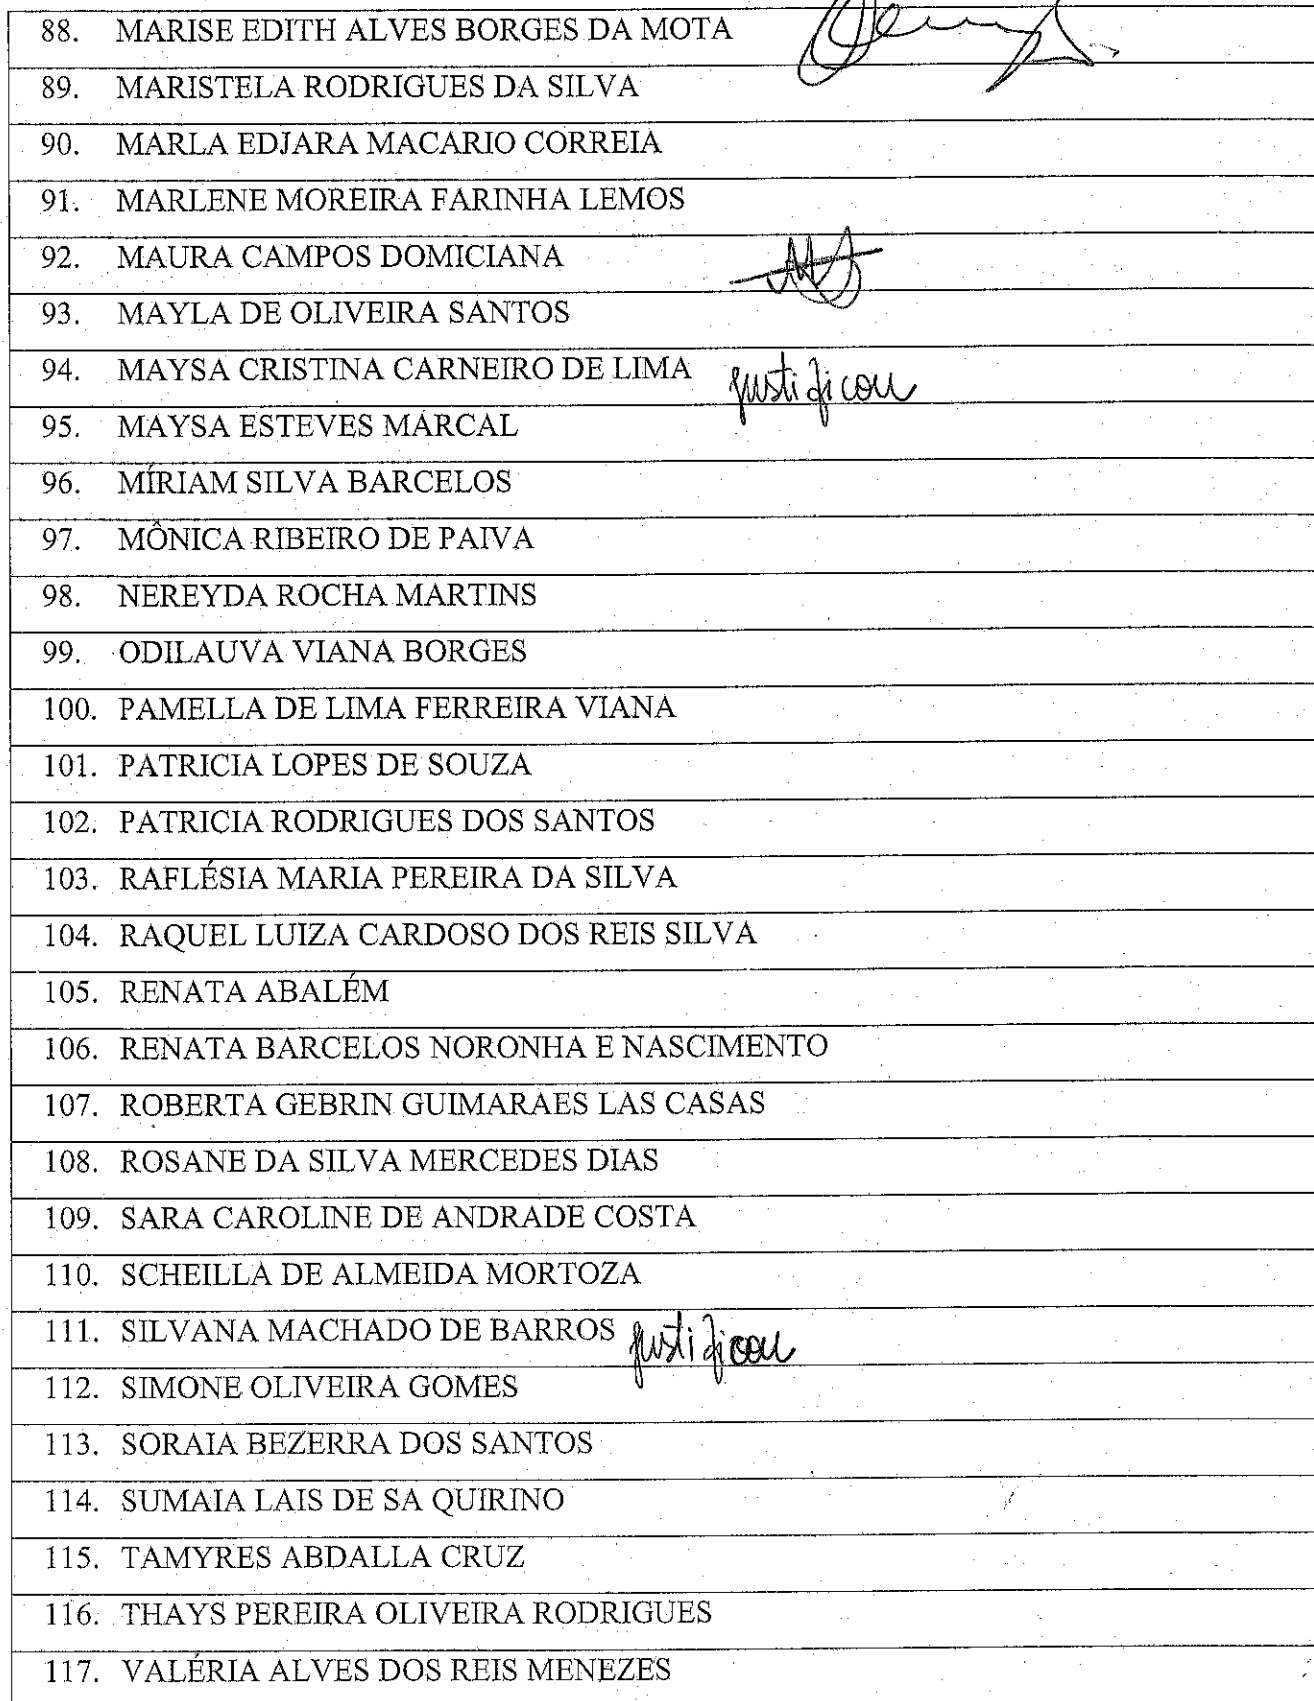 88. MARISE EDITH ALVES BORGES DA MOTA
89. MARISTELA RODRIGUES DA SILVA
90. MARLA EDJARA MACARIO CORREIA
91. MARLENE MOREIRA FARINHA LEMOS
92. MAURA CAMPOS DOMICIANA
93. MAYLA DE OLIVEIRA SANTOS
94. MAYSA CRISTINA CARNEIRO DE LIMA justificou
95. MAYSA ESTEVES MARCAL
96. MÍRIAM SILVA BARCELOS
97. MÔNICA RIBEIRO DE PAIVA
98. NEREYDA ROCHA MARTINS
99. ODILAUVA VIANA BORGES
100. PAMELLA DE LIMA FERREIRA VIANA
101. PATRICIA LOPES DE SOUZA
102. PATRICIA RODRIGUES DOS SANTOS
103. RAFLÉSIA MARIA PEREIRA DA SILVA
104. RAQUEL LUIZA CARDOSO DOS REIS SILVA
105. RENATA ABALÉM
106. RENATA BARCELOS NORONHA E NASCIMENTO
107. ROBERTA GEBRIN GUIMARAES LAS CASAS
108. ROSANE DA SILVA MERCEDES DIAS
109. SARA CAROLINE DE ANDRADE COSTA
110. SCHEILLA DE ALMEIDA MORTOZA
111. SILVANA MACHADO DE BARROS justificou
112. SIMONE OLIVEIRA GOMES
113. SORAIA BEZERRA DOS SANTOS
114. SUMAIA LAIS DE SA QUIRINO
115. TAMYRES ABDALLA CRUZ
116. THAYS PEREIRA OLIVEIRA RODRIGUES
117. VALÉRIA ALVES DOS REIS MENEZES